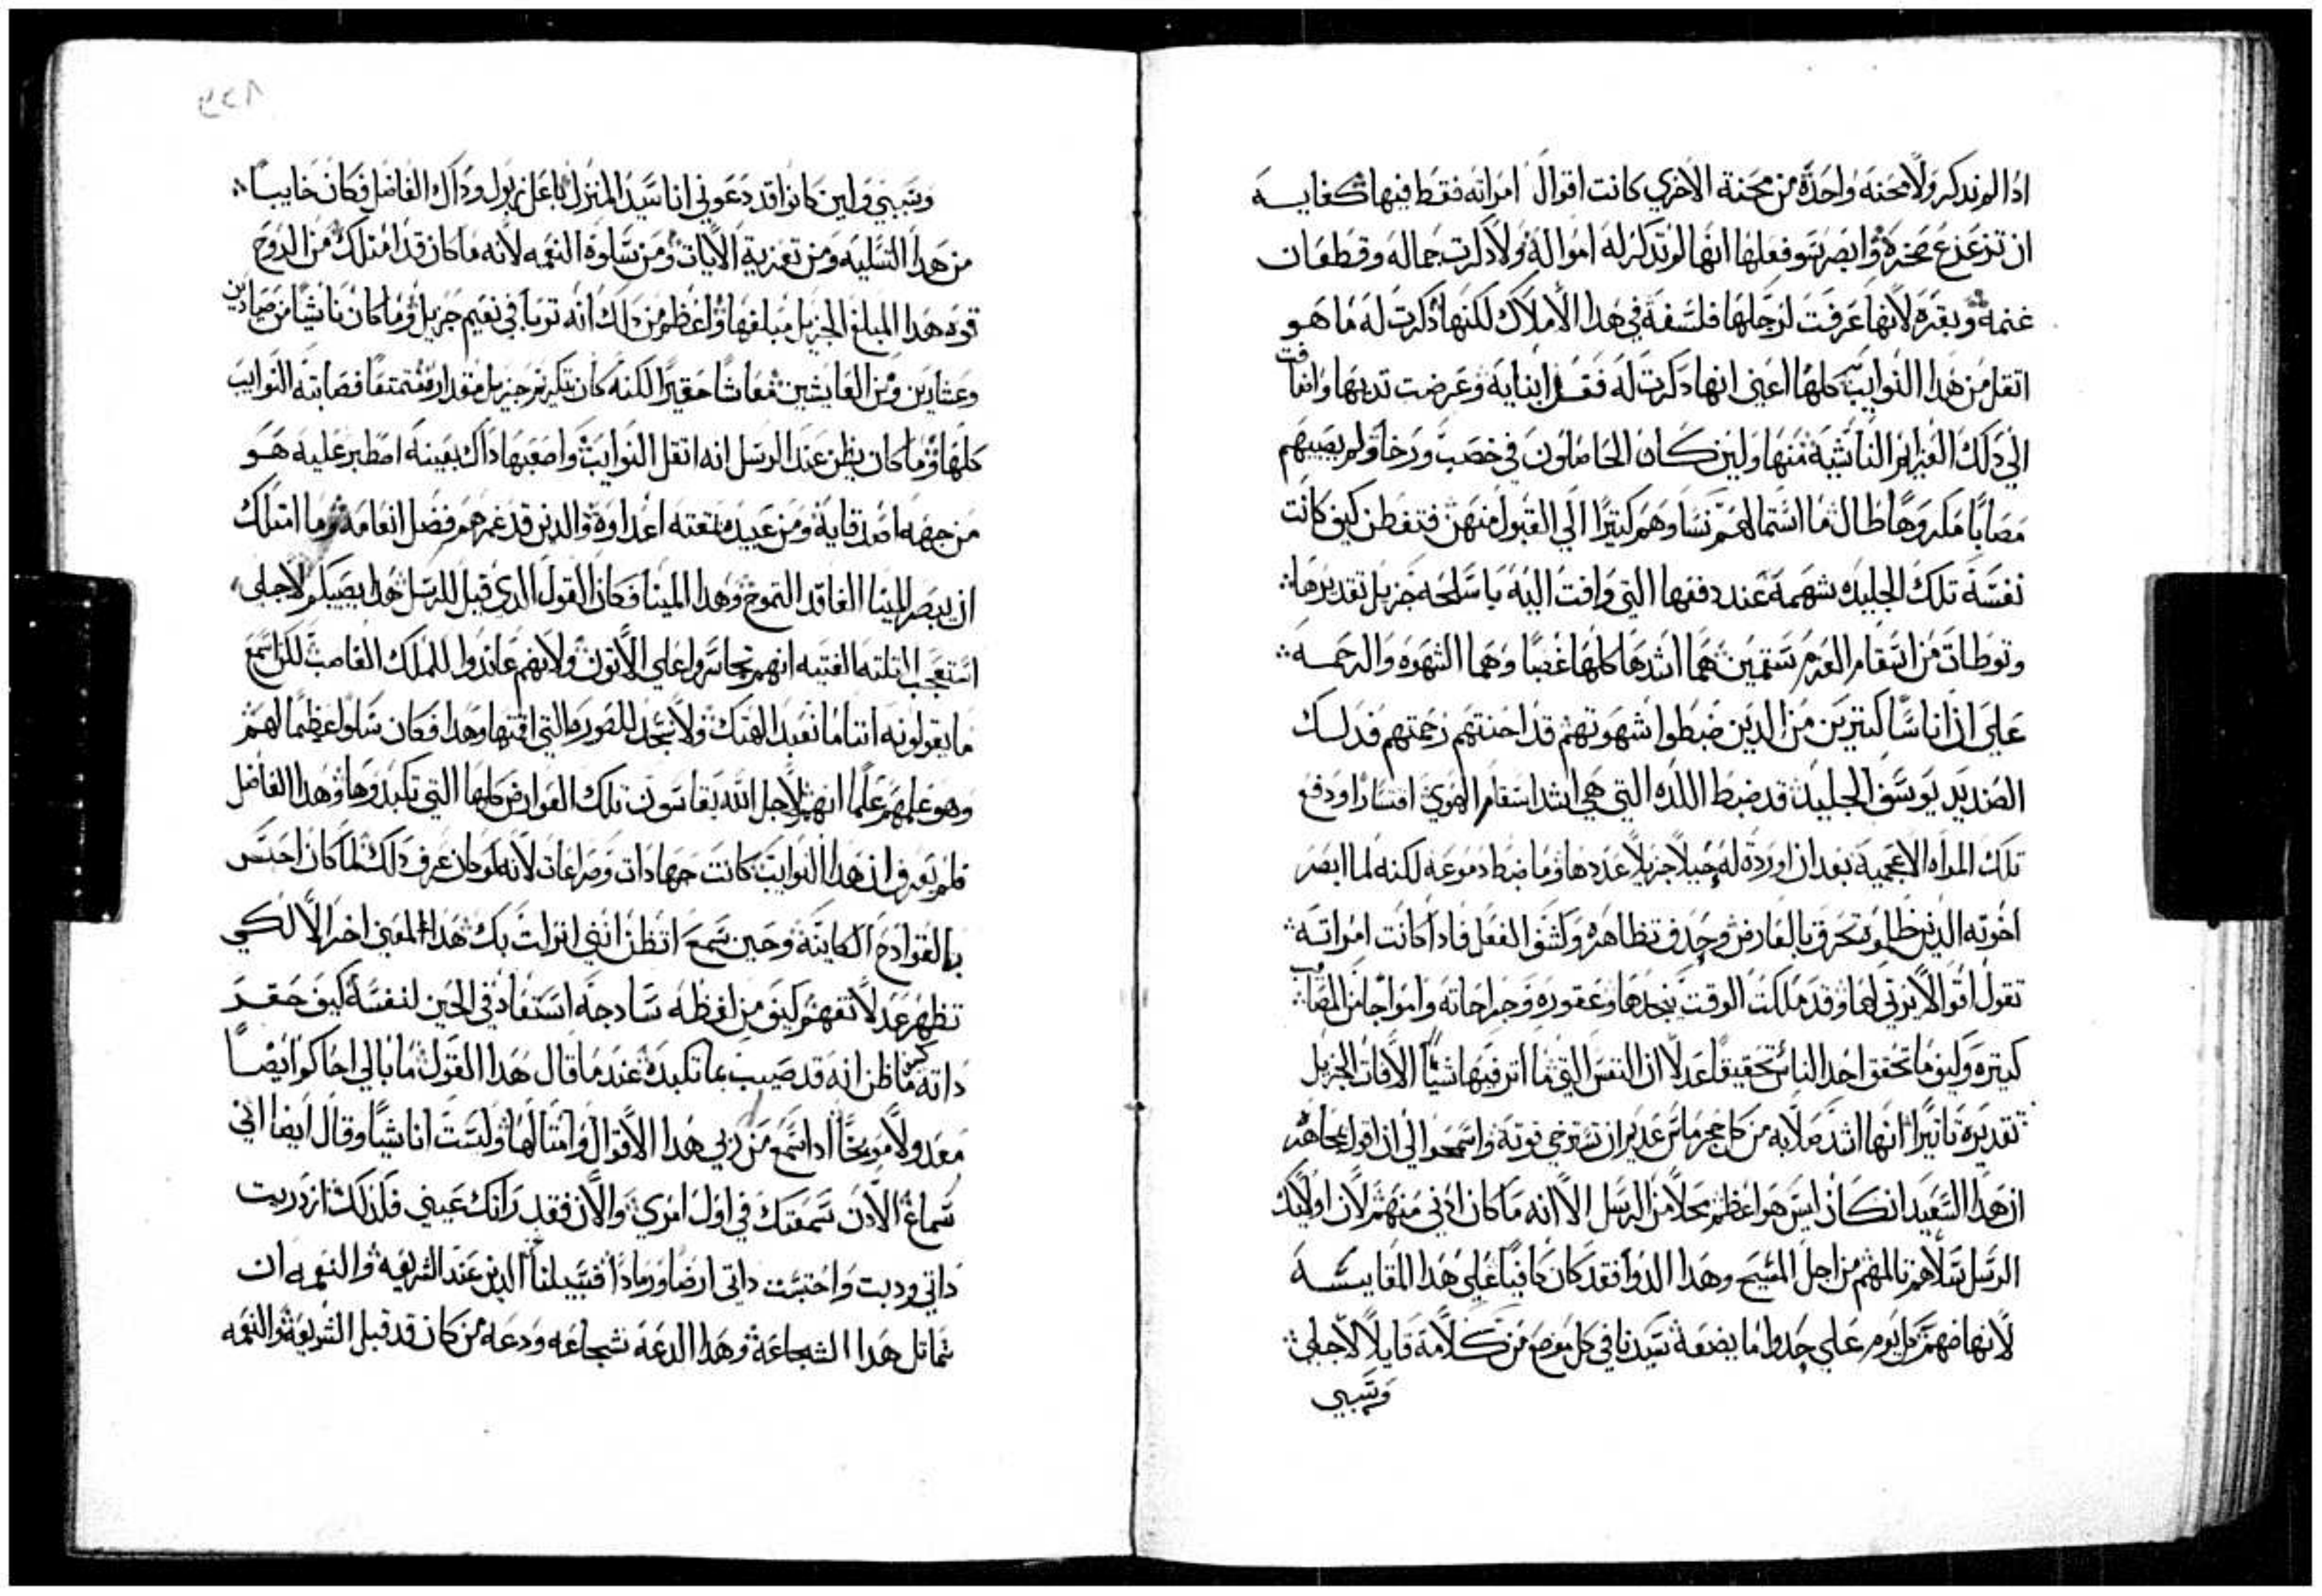 اذا لم نذكر ولا محنه واحدة من محنة الاخري كانت اقوال امراته فقط فيها كفايه
ان تزعزع صخرة وابصر سو فعلها انها لم تذكر له امواله ولا ذكرت جماله وقطعان
غنمه وبقره لانها عرفت لرجلها فلسفة في هذا الاملاك لكنها ذكرت له ما هو
اثقل من هذا النوايب كلها اعني انها ذكرت له فقد ابنايه وعرضت تديها وانما
الي ذلك الغرايم الناشية منها ولين كان الحاصلون في خصب ورخا ولم يصيبهم
مصابا مكروها طال ما استمالهم نساوهم كتيرا الي القبول منهن فتفطن كيف كانت
نفسه تلك الجليده شهمة عند دفعها التي وافت اليه باسلحة جزيل تقديرها
وتوطات من اسقام العزم سقمين هما اشدها كلها غصبا وهما الشهوه والرحمه
علي ان اناسا كتيرين من الدين ضبطوا شهوتهم قد احنتهم رحمتهم فدلك
الصنديد يوسف الجليد قد ضبط اللده التي هي اشد اسقام الهوي اقتسارا ودفع
تلك المراه الاعجمية بعد ان اوردة له حيلا جزيلا عددها وما ضبط دموعه لكنه لما ابصر
اخوته الدين ظلموه تحرق بالعارض وجدف تظاهره وكشف الفعل فاذا كانت امراته
تقول اقوالا يرتي لها وقد ملكت الوقت ينجدها وعقوره وجراحاته وامواجا من المصايب
كتيره وكيف ما تحقق احد الناس تحقيقا عدلا ان النفس التي ما اتر فيها شيا الافات الجزيل
تقديره تاتيرا انها اشد صلابه من كل حجر ماس عديم ان تسترخي قوته واسمحوا الي ان اقول مجاهدا
ان هذا السعيد ان كان ليس هو اعظم محلا من الرسل الا انه ما كان ادني منهم لان اوليك
الرسل سلاهم تالمهم من اجل المسيح وهذا الدوا فقد كان كافيا علي هذا المقايسه
لانهاضهم كل يوم علي جدوا ما يضعه سيدنا في كل موضع من كلامه قايلا لاجلي
وسببي
وسببي ولين كانوا قد دعوني انا سيد المنزل باعل زبول وداك الفاضل فكان خايبا
من هذا التسليه ومن تعزية الايات ومن سلوة النعمه لانه ما كان قد امتلك من الروح
قوه هذا المبلغ الجزيل مبلغها واعظم من دلك انه تربا في نعيم جزيل وما كان ناشيا من صيادين
وعشارين ومن العايشين معاشا حقيرا لكنه كان بتكريم جزيل مقداره متمتعا فصابته النوايب
كلها وما كان يظن عند الرسل انه اثقل النوايب واصعبها داك بعينه اصطبر عليه هو
من جهه اصدقايه ومن عبيد منتعته اعداوة والدين قد غمرهم فضل انعامه وما امتلك
ان يبصر المينا الفاقد التموج وهذا المينا فكان القول الدي قيل للرسل هذا يصيبكم لاجلي
استعجب التلته الفتيه انهم تجاسروا علي الاتون ولانهم عاندوا للملك الغاصب لكن اسمع
ما يقولونه اننا ما نعبد الهتك ولا نسجد للصوره التي اقمتها وهذا فكان سلوا عظيما لهم
وهو علمهم علما انهم لاجل الله يقاسون تلك العوارض كلها التي تكبدوها وهذا الفاضل
فلم يعرف ان هذا النوايب كانت جهادات وصراعات لانه لو كان عرف دلك لما كان احتس
بالقوادح الكاينة وحين سمع اتظن انني انزلت بك هذا المعني اخر الا لكي
تظهر عدلا تفهم كيف من لفظه سادجه استفاد في الحين لنفسه كيف حقد
داته كيف ما ظن انه قد صيب بما تكبده عند ما قال هذا القول ما بالي احاكم ايضا
معدولا موبخا اد اسمع من ربي هذا الاقوال وامتالها ولست انا شيا وقال ايضا اني
سماع الادن سمعتك في اول امري والان فقد راتك عيني فلدلك ازدريت
داتي ودبت واحتسبت داتي ارضا ورمادا فسبيلنا الدين عند الشريعه والنعمه ان
تماتل هذا الشجاعة وهذا الدعه شجاعه ودعه من كان قد قبل الشريعة والنعمه